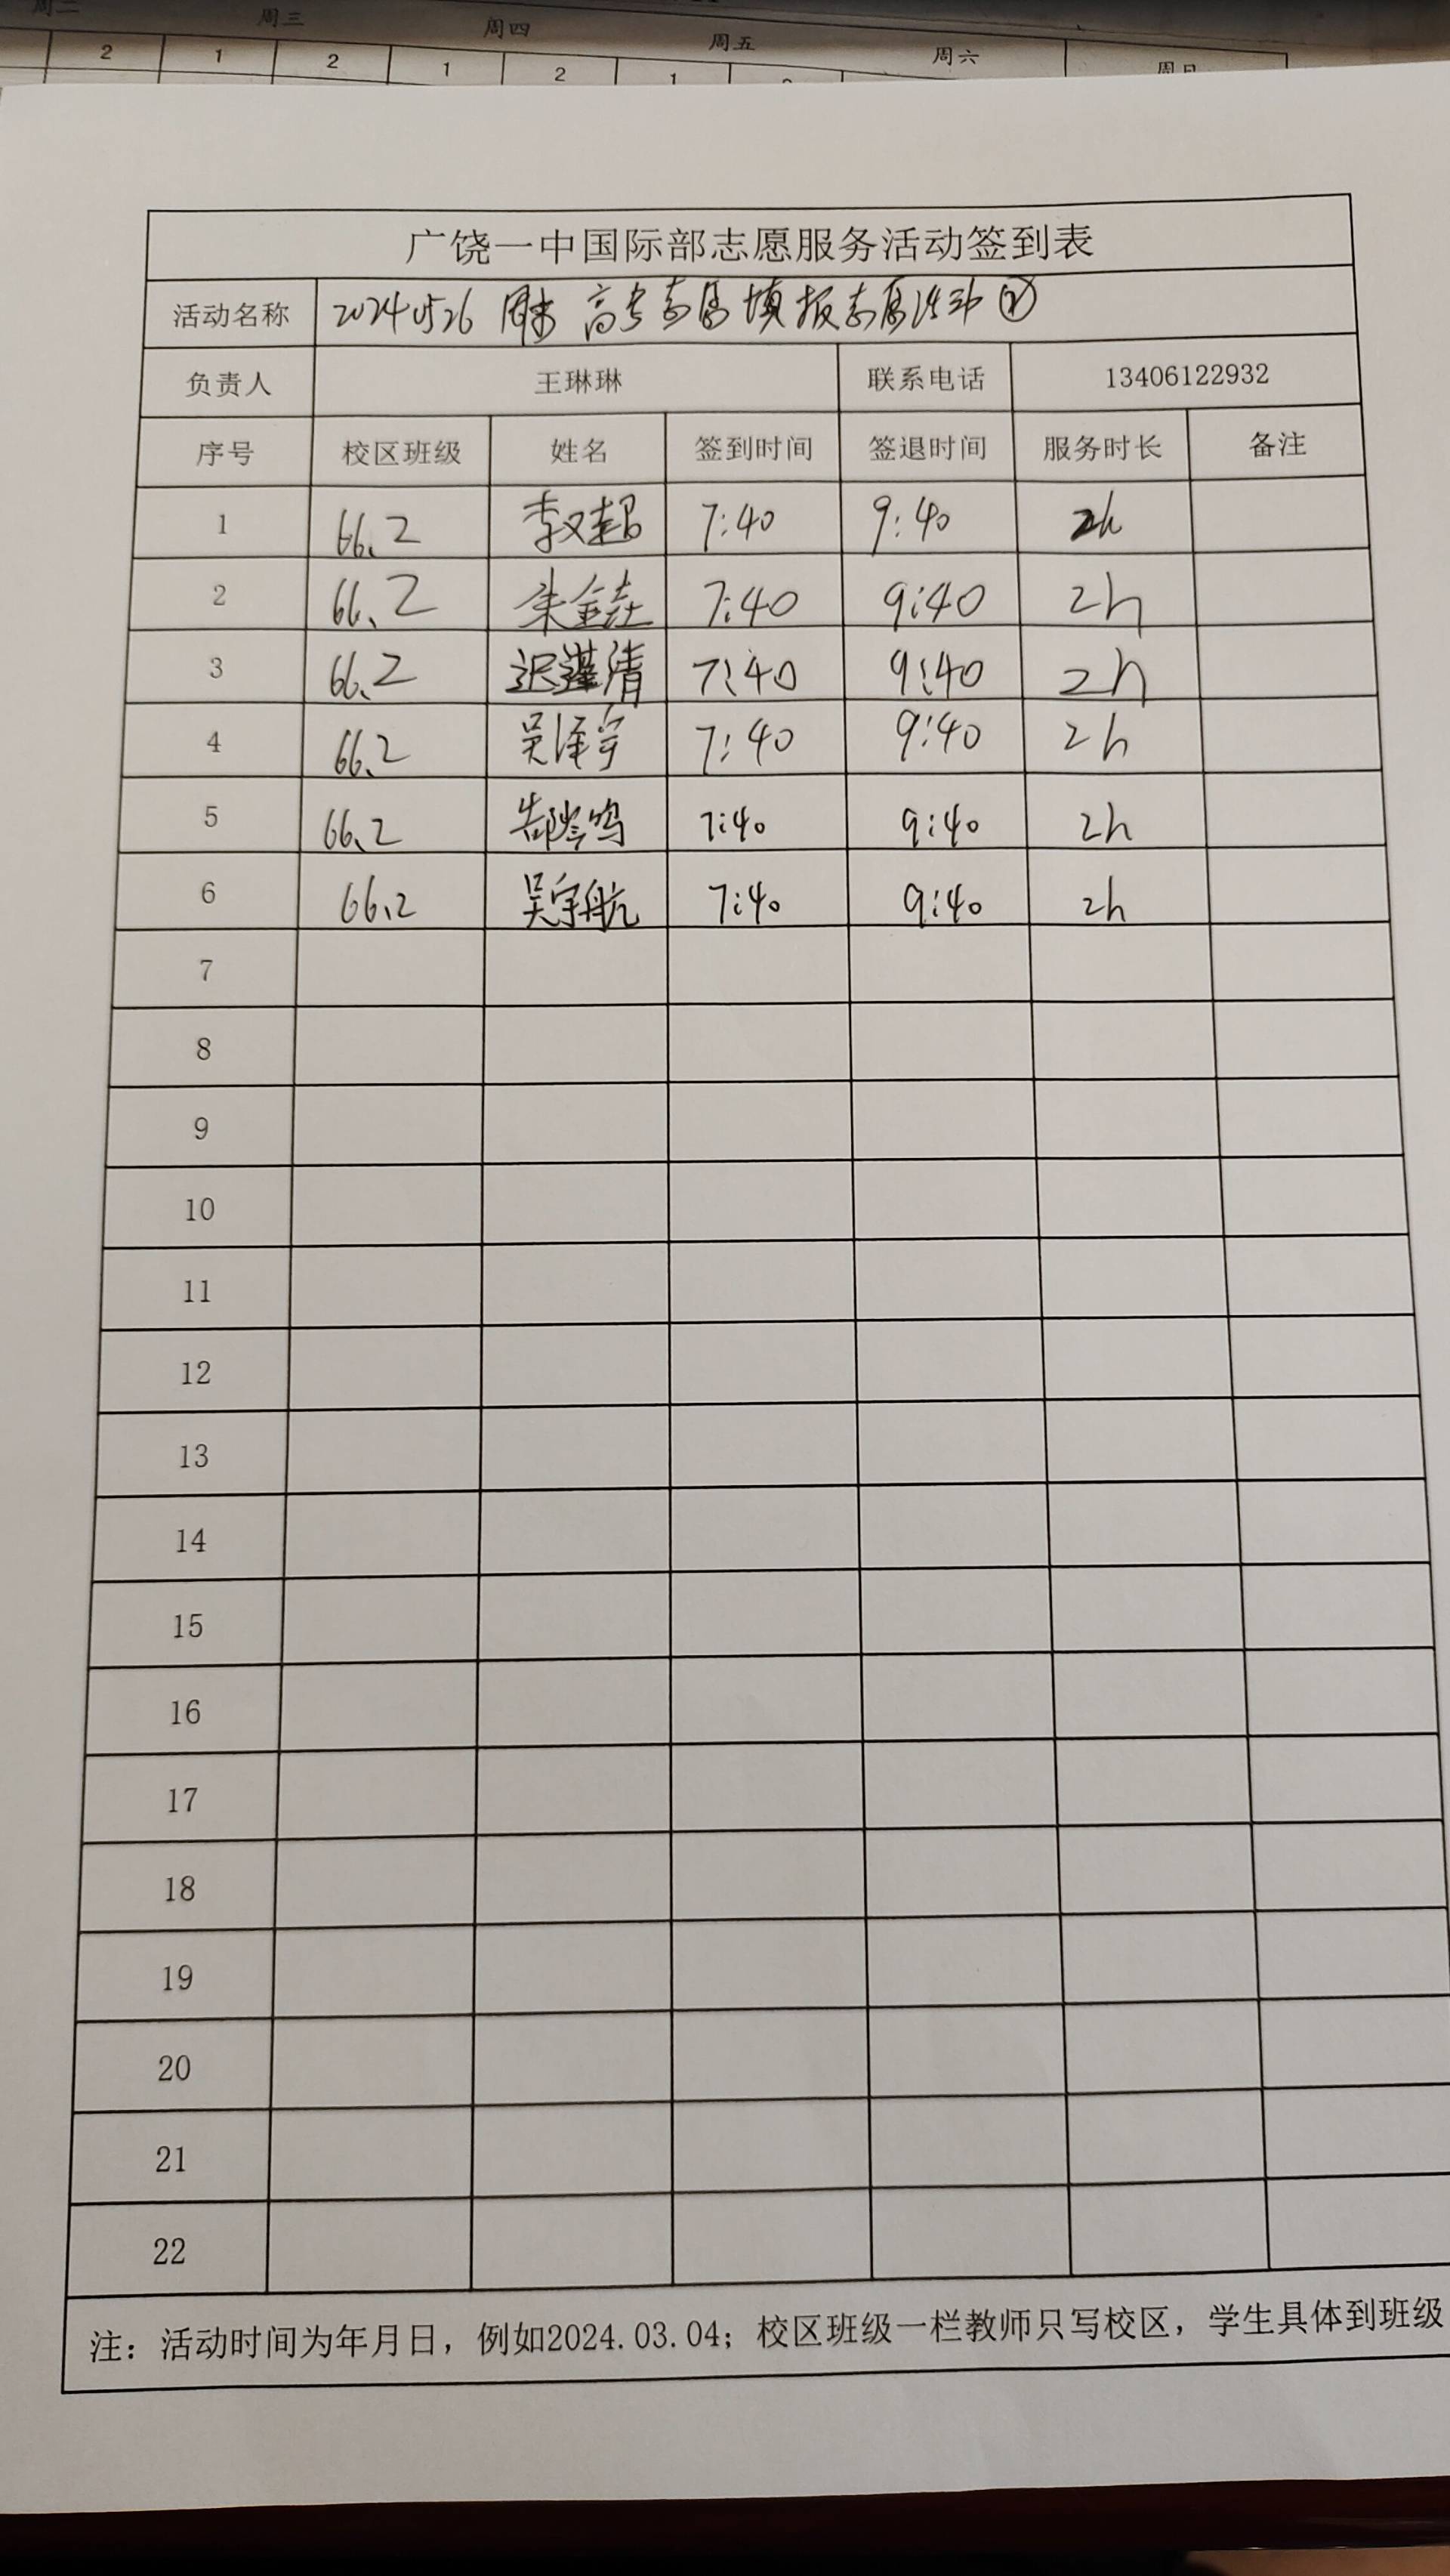 周二 周三 周四 周五 周六 周日
2 1 2 1 2 1
广饶一中国际部志愿服务活动签到表
活动名称 20240526 周末 高考志愿填报志愿活动②
负责人 王琳琳 联系电话 13406122932
序号 校区班级 姓名 签到时间 签退时间 服务时长 备注
1 66.2 李汉超 7:40 9:40 2h
2 66.2 朱金垚 7:40 9:40 2h
3 66.2 迟蓬清 7:40 9:40 2h
4 66.2 吴泽宇 7:40 9:40 2h
5 66.2 7:40 9:40 2h
6 66.2 吴宇航 7:40 9:40 2h
7
8
9
10
11
12
13
14
15
16
17
18
19
20
21
22
注：活动时间为年月日，例如2024.03.04；校区班级一栏教师只写校区，学生具体到班级